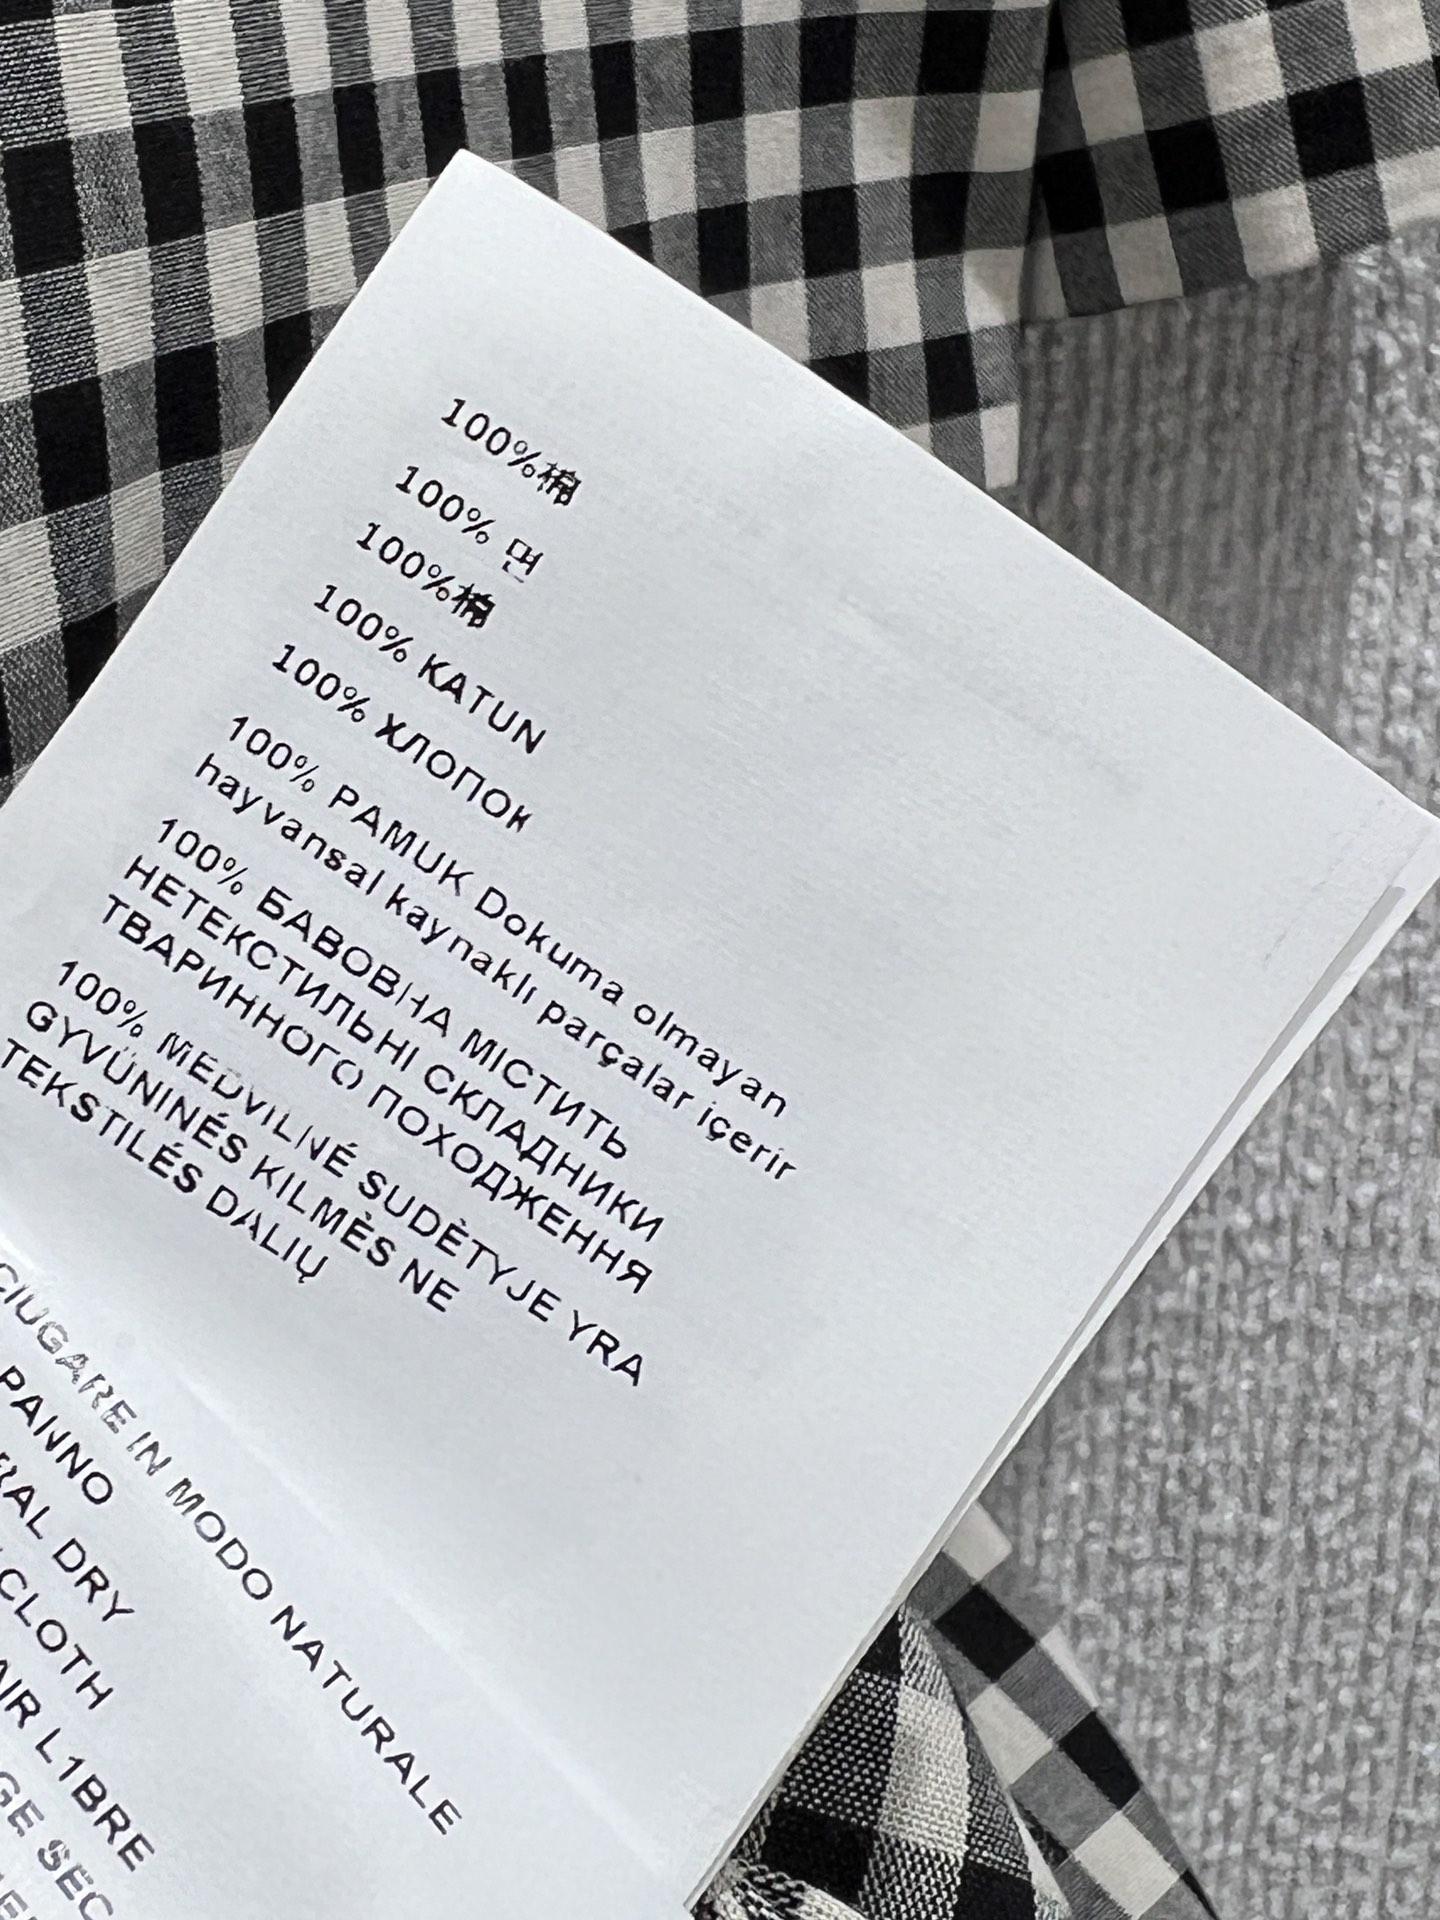 100%棉
100% 면
100%棉
100% KATUN
100% ХЛОПОК
100% PAMUK Dokuma olmayan
hayvansal kaynaklı parçalar içerir
100% БАВОВНА МІСТИТЬ
НЕТЕКСТИЛЬНІ СКЛАДНИКИ
ТВАРИННОГО ПОХОДЖЕННЯ
100% MEDVILNÉ SUDĖTYJE YRA
GYVŪNINÉS KILMĖS NE
TEKSTILÉS DALIŲ
CIUGARE IN MODO NATURALE
PANNO
RAL DRY
CLOTH
AIR L1BRE
GE SEC